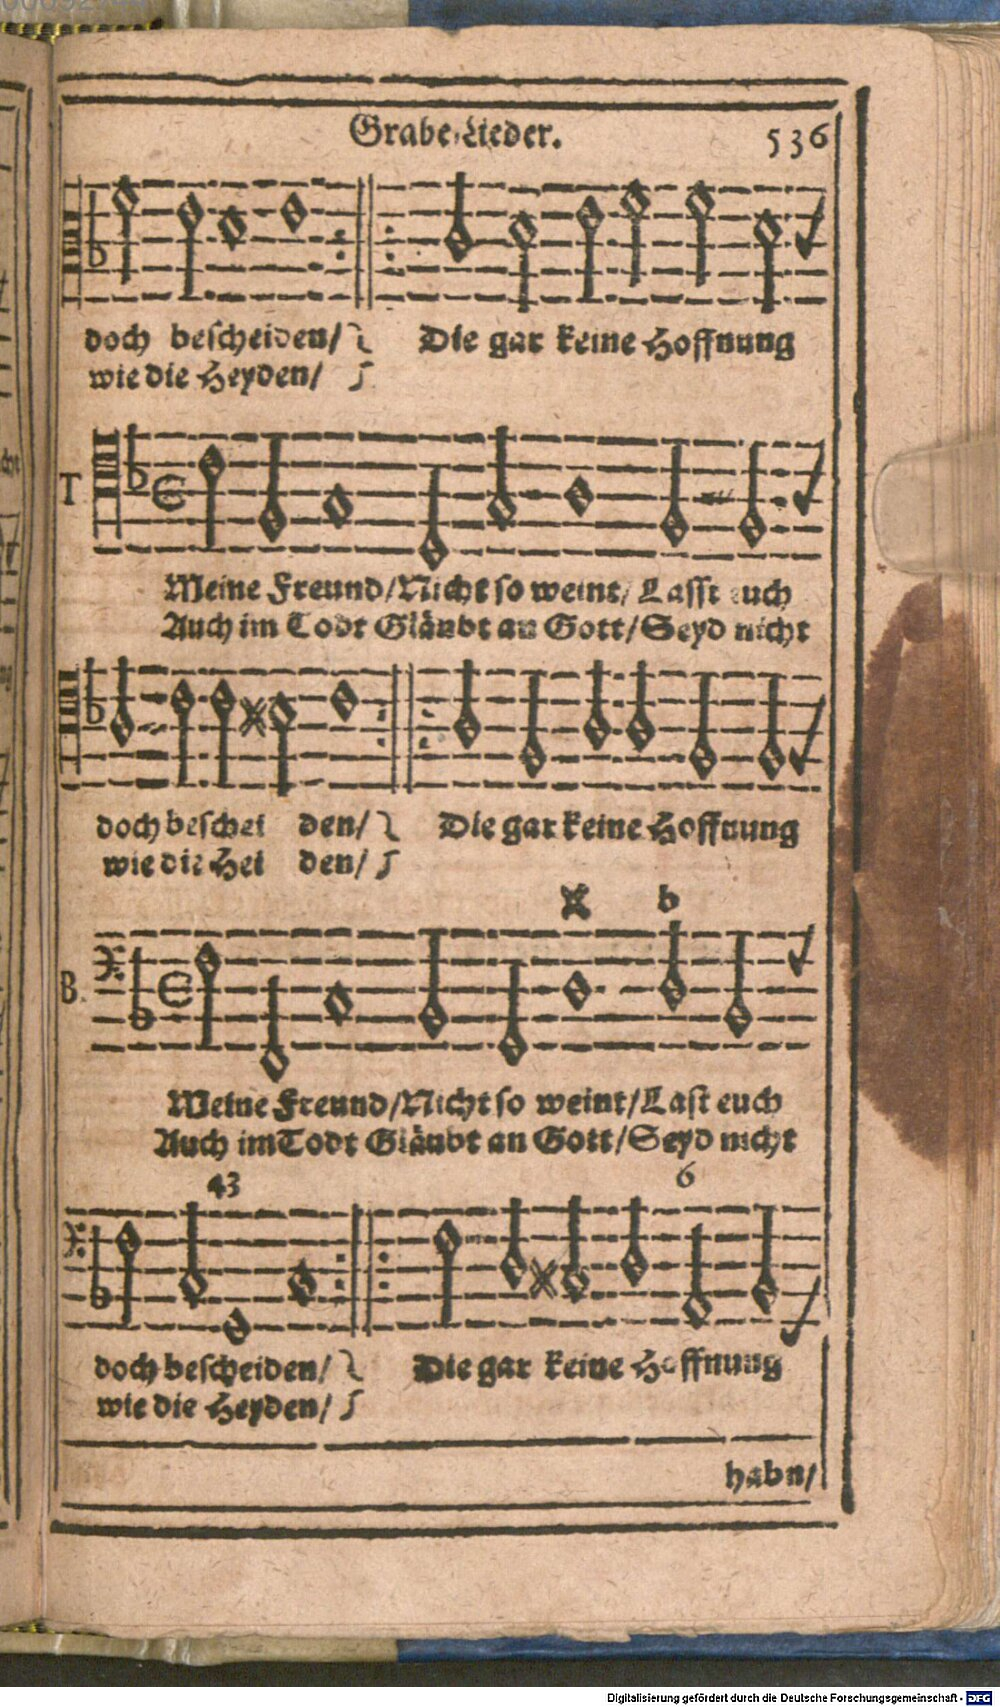 Grabe-Lieder. 536
doch bescheiden/ Die gar keine Hoffnung
wie die Heyden/
T
Meine Freund/Nicht so weint/ Lasst euch
Auch im Todt Gläubt an Gott/Seyd nicht
doch beschei den/ Die gar keine Hoffnung
wie die Hei den/
b
B.
Meine Freund/Nicht so weint/Last euch
Auch im Todt Gläubt an Gott/Seyd nicht
43 6
doch bescheiden/ Die gar keine Hoffnung
wie die Heyden/
habn/
Digitalisierung gefördert durch die Deutsche Forschungsgemeinschaft - DFG